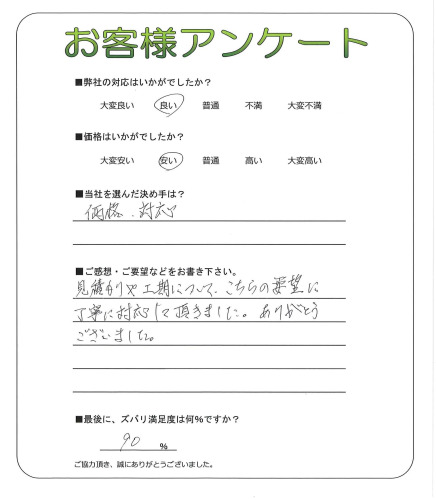 お客様アンケート
■弊社の対応はいかがでしたか?
大変良い 良い 普通 不満 大変不満
■価格はいかがでしたか?
大変安い 安い 普通 高い 大変高い
■当社を選んだ決め手は?
価格、対応
■ご感想・ご要望などをお書き下さい。
見積りや工期について、こちらの要望に
丁寧に対応して頂きました。ありがとう
ございました。
■最後に、ズバリ満足度は何%ですか?
90 %
ご協力頂き、誠にありがとうございました。